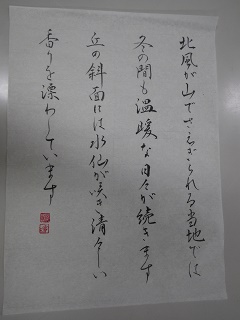 北風が山でさえぎられる当地では
冬の間も温暖な日々が続きます
丘の斜面には水仙が咲き清々しい
香りを漂わしています